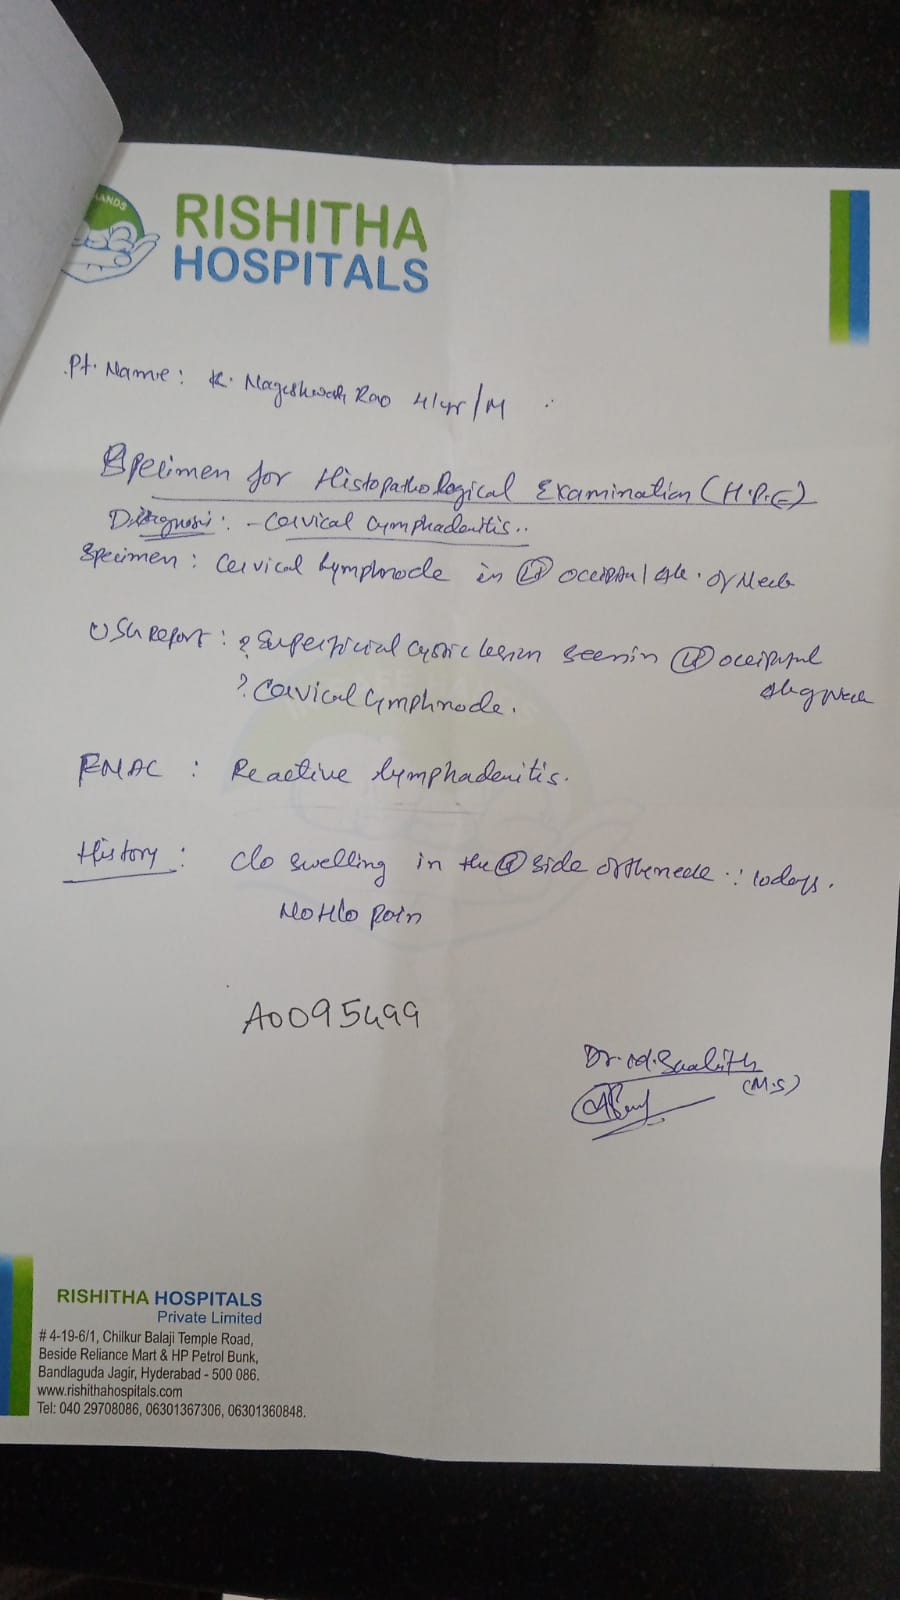 HANDS
RISHITHA
HOSPITALS
Pt. Name: K. Nageshwar Rao 41yr/M
Specimen for Histopathological Examination (H.P.E)
Diagnosis: - Cervical lymphadenitis..
Specimen: Cervical lymphnode in Lt occipital of Neck
USG Report: ? Superficial cystic lesion seen in Lt occipital
? Cervical lymphnode.
FNAC : Reactive lymphadenitis.
History: C/o swelling in the side of the neck :: 10days.
No H/o Pain
A0095499
Dr. Md.
(M.S)
RISHITHA HOSPITALS
Private Limited
# 4-19-6/1, Chilkur Balaji Temple Road,
Beside Reliance Mart & HP Petrol Bunk,
Bandlaguda Jagir, Hyderabad - 500 086.
www.rishithahospitals.com
Tel: 040 29708086, 06301367306, 06301360848.